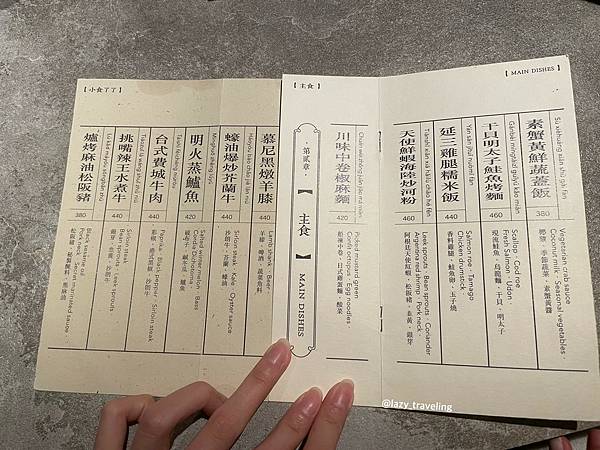 【 MAIN DISHES 】
Sù xièhuáng xiān shū gài fàn
素蟹黃鮮蔬蓋飯
380
Vegetarian crab sauce．
Coconut milk．Seasonal vegetables．
椰漿．季節蔬菜．素蟹黃醬
干貝明太子鮭魚烤麵
460
Scallop．Cod roe．
Fresh Salmon．Udon．
現流鮭魚．烏龍麵．干貝．明太子
延三雞腿糯米飯
440
Salmon roe．Tamago．
Chicken drumstick．
香料雞腿．鮭魚卵．玉子燒
天使鮮蝦海陸炒河粉
460
Leek sprouts．Bean sprouts．Coriander．
Argentina red shrimp．Pork neck．
阿根廷天使紅蝦．松阪豬．韭黃．銀芽
川味中卷椒麻麵
420
Pickled mustard green．
Cuttle octopus．Egg noodles．
船凍中卷．日式雞蛋麵．酸菜
【 主食 】
第貳章
【 主食 】
MAIN DISHES
【 小食了了 】
慕尼黑燉羊膝
440
Lamb shank．Beer．
羊膝．啤酒．蔬菜角料
蠔油爆炒芥蘭牛
440
Sirloin steak．Kale．Oyster sauce
沙朗牛．芥蘭．蠔油
明火蒸鱸魚
420
Salted winter melon．Bass．
Cordia Dichotoma．
破布子．鹹冬瓜．鱸魚
台式費城牛肉
440
Paprika．Black pepper．Sirloin steak
彩椒．黑胡椒．沙朗牛
挑嘴辣王水煮牛
440
Sirloin steak．
Bean sprout．Leek sprouts．
韭黃．銀芽．沙朗牛
爐烤麻油松阪豬
380
Black sesame oil．
Pork neck．Secret marinated sauce．
松阪豬．秘製醬料．黑麻油
@lazy_traveling